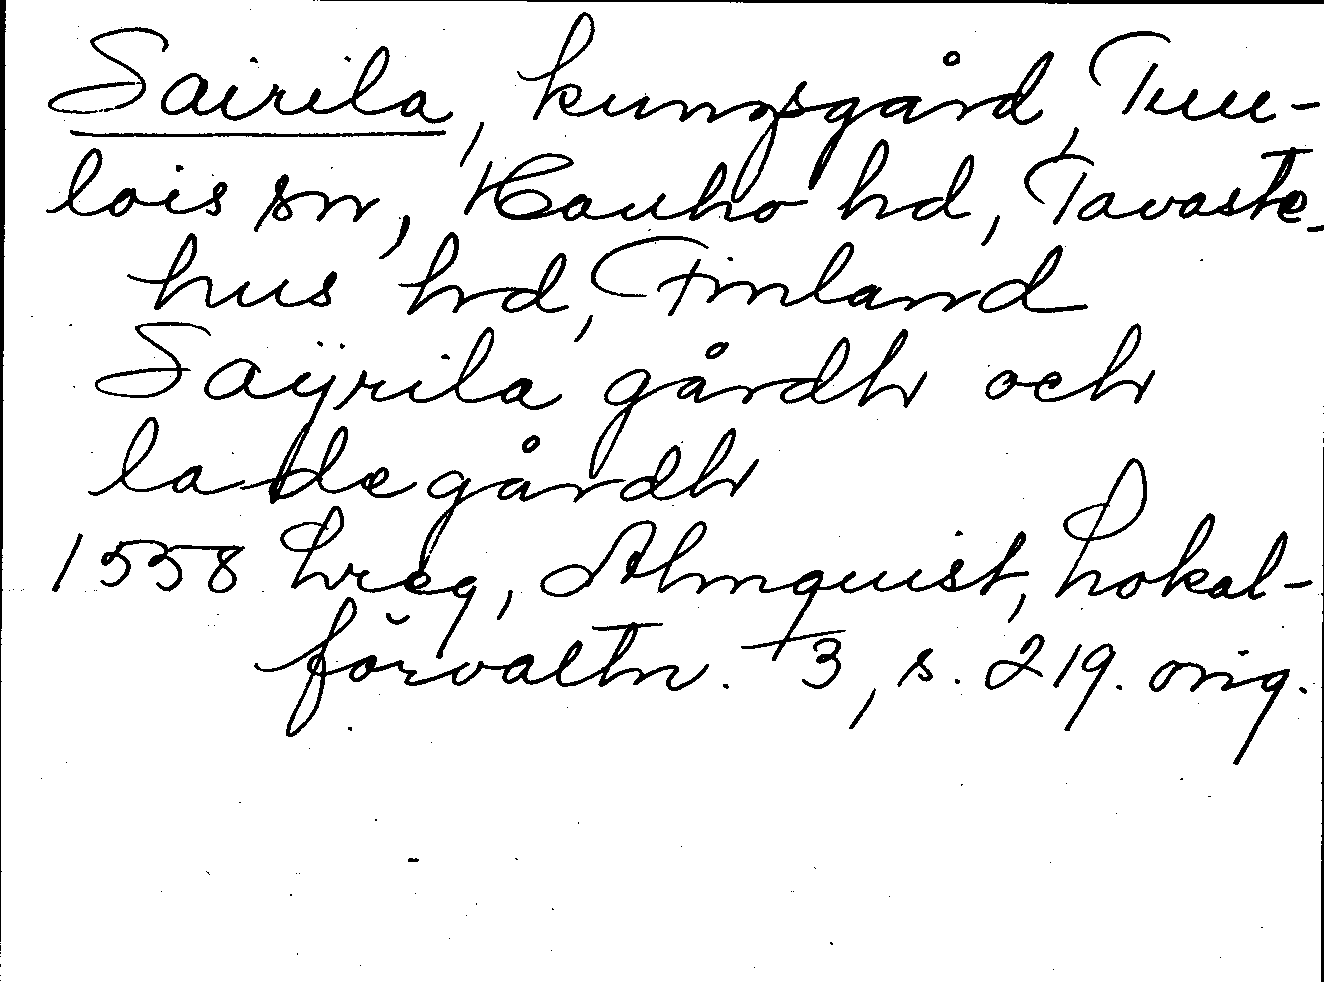 Sairila, kungsgård, Tuu-
lois sn, Hauho hd, Tavaste-
hus hrd, Finland
Saÿrila gårdh och
ladegårdh
1558 hreg, Almquist, Lokal-
förvaltn. 3, s. 219. orig.